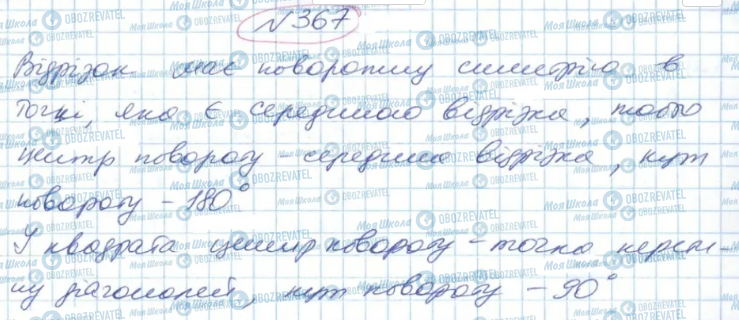 №367
Відрізок має поворотну симетрію в
точці, яка є серединою відрізка, тобто
центр повороту середина відрізка, кут
повороту – 180°
У квадрата центр повороту – точка перети-
ну діагоналей, кут повороту – 90°